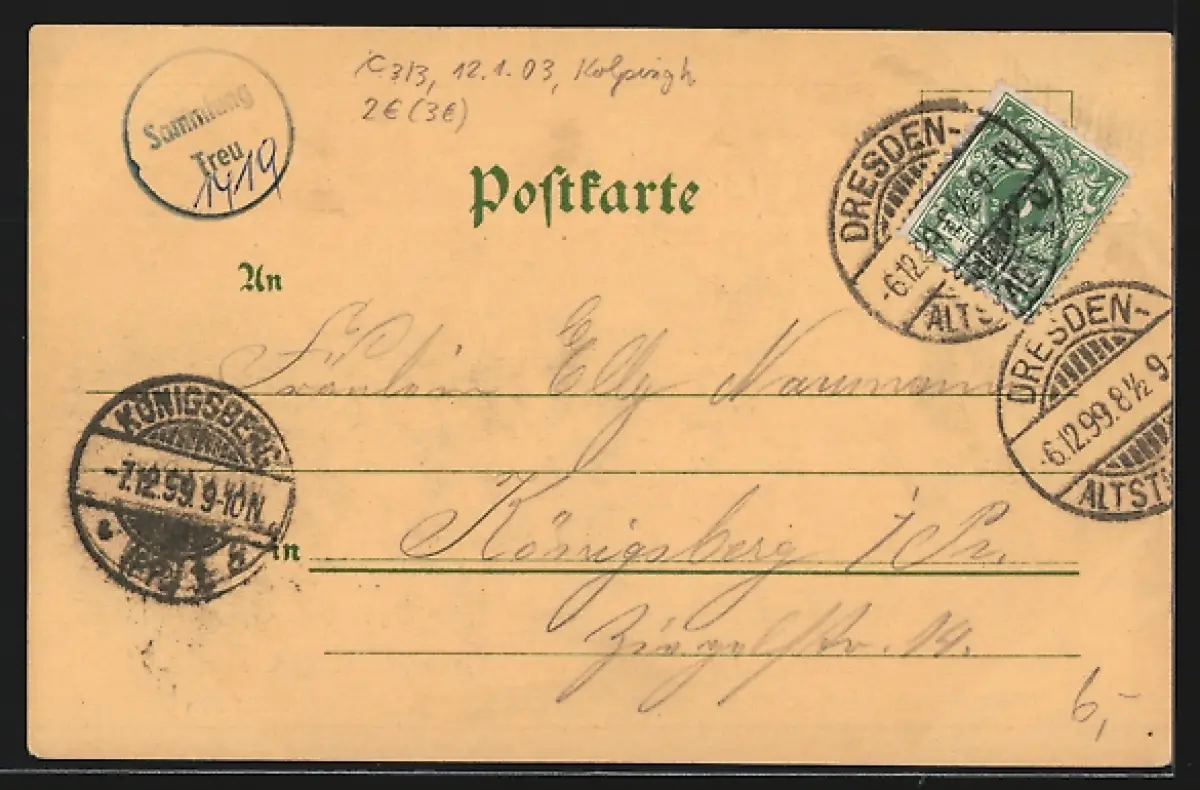 Sammlung
Treu
1419
12.1.03, Kolpingh
2€ (3€)
Postkarte
DRESDEN-
-6.12.99. 8½ 9-
ALTST
DRESDEN-
-6.12.99. 8½ 9-
ALTST
An
Fräulein Elly Naumann
KÖNIGSBERG
-7.12.99. 9-10N.
in Königsberg i/Pr.
Ziegelstr. 14.
6,-